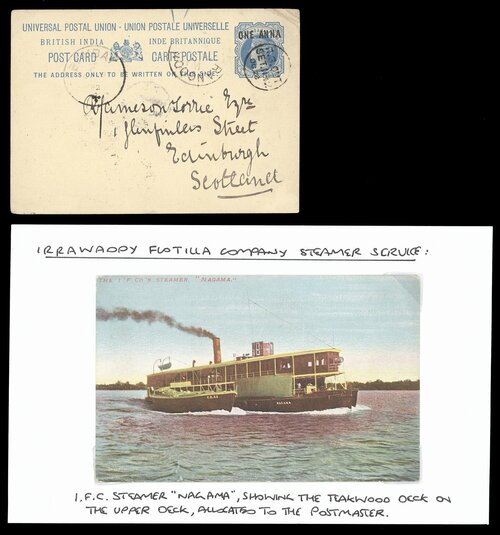 UNIVERSAL POSTAL UNION - UNION POSTALE UNIVERSELLE
BRITISH INDIA INDE BRITANNIQUE
POST CARD CARTE POSTALE
THE ADDRESS ONLY TO BE WRITTEN ON THIS SIDE
ONE ANNA
Jameson Lorrie Esqre
Street
Edinburgh
Scotland
IRRAWADDY FLOTILLA COMPANY STEAMER SERVICE:
THE I.F. CO'S STEAMER, "NAGAMA."
NAGAMA
I.F.C. STEAMER "NAGAMA", SHOWING THE TEAKWOOD DECK ON
THE UPPER DECK, ALLOCATED TO THE POSTMASTER.